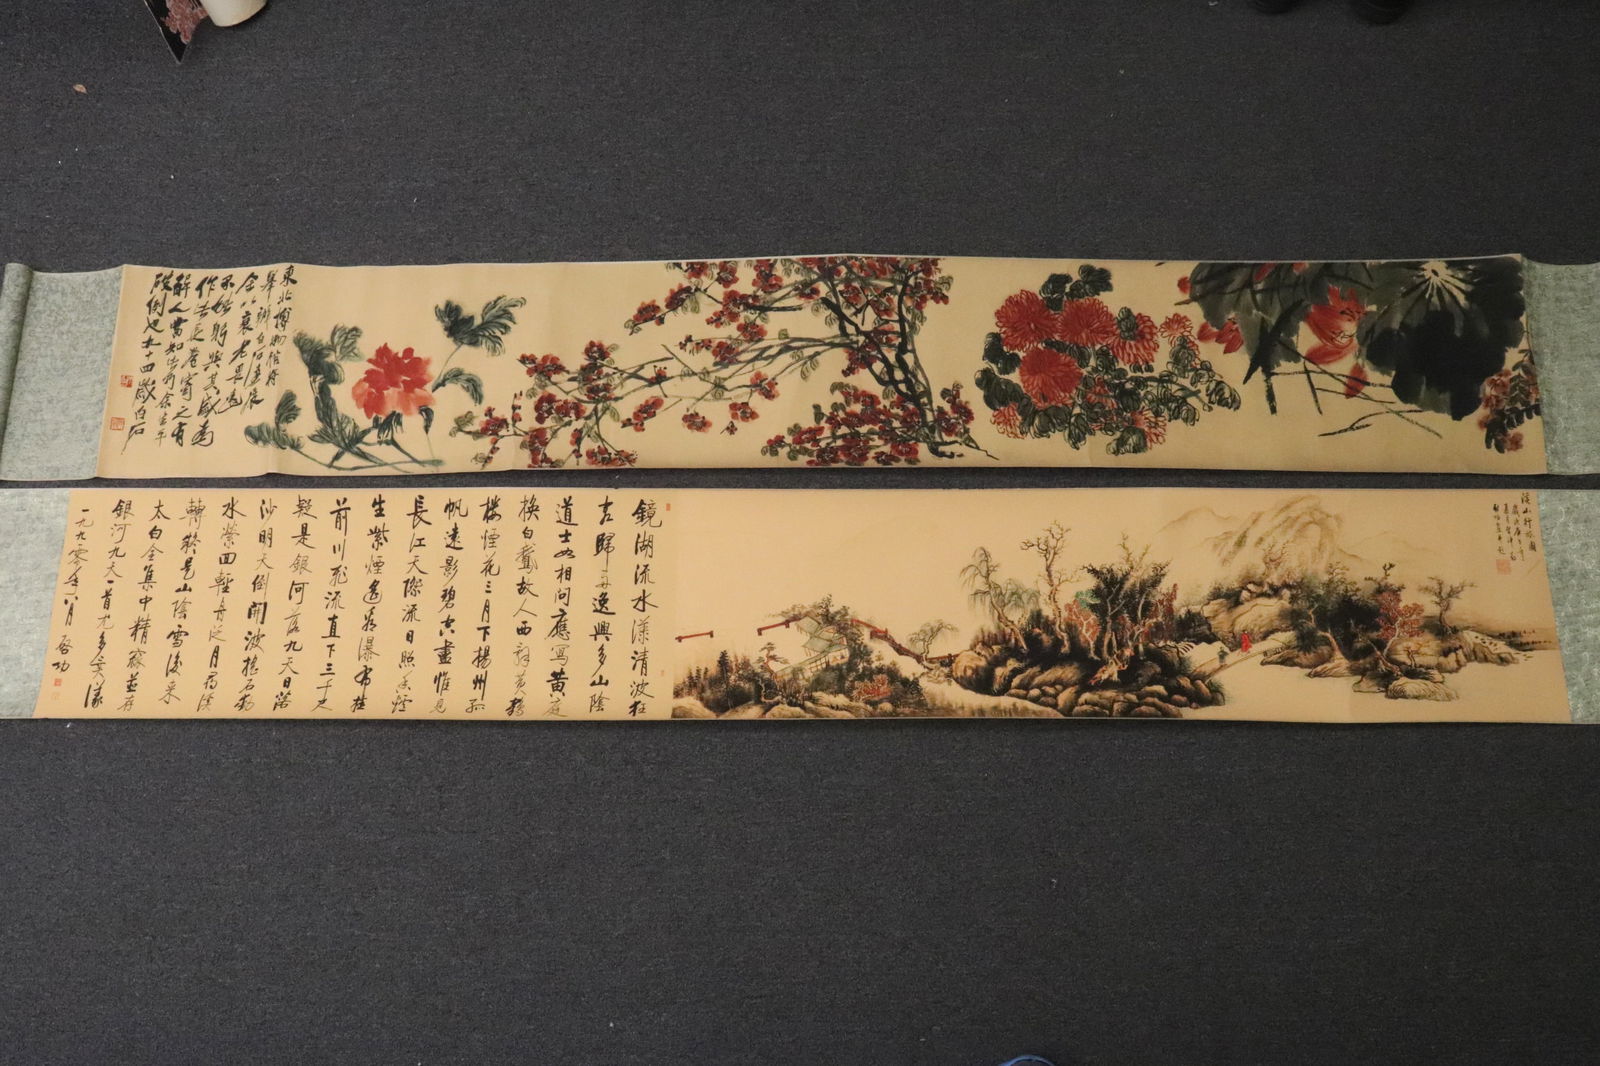 東北博物館將
舉辦白石畫展
余以衰老畏
不能躬與其盛為
作 長卷寄之有
解人當知 余 年
破例也九十四歲白石
溪山行旅圖
鏡湖流水漾清波狂
客歸舟逸興多山陰
道士如相問應寫黃庭
換白鵝故人西辭黃鶴
樓煙花三月下楊州孤
帆遠影碧空盡惟見
長江天際流日照香爐
生紫煙遙看瀑布挂
前川飛流直下三千尺
疑是銀河落九天日落
沙明天倒開波搖石動
水縈回輕舟泛月尋溪
轉疑是山陰雪後來
太白全集中精 並存
銀河九天一首尤多
一九九零年八月 啓功